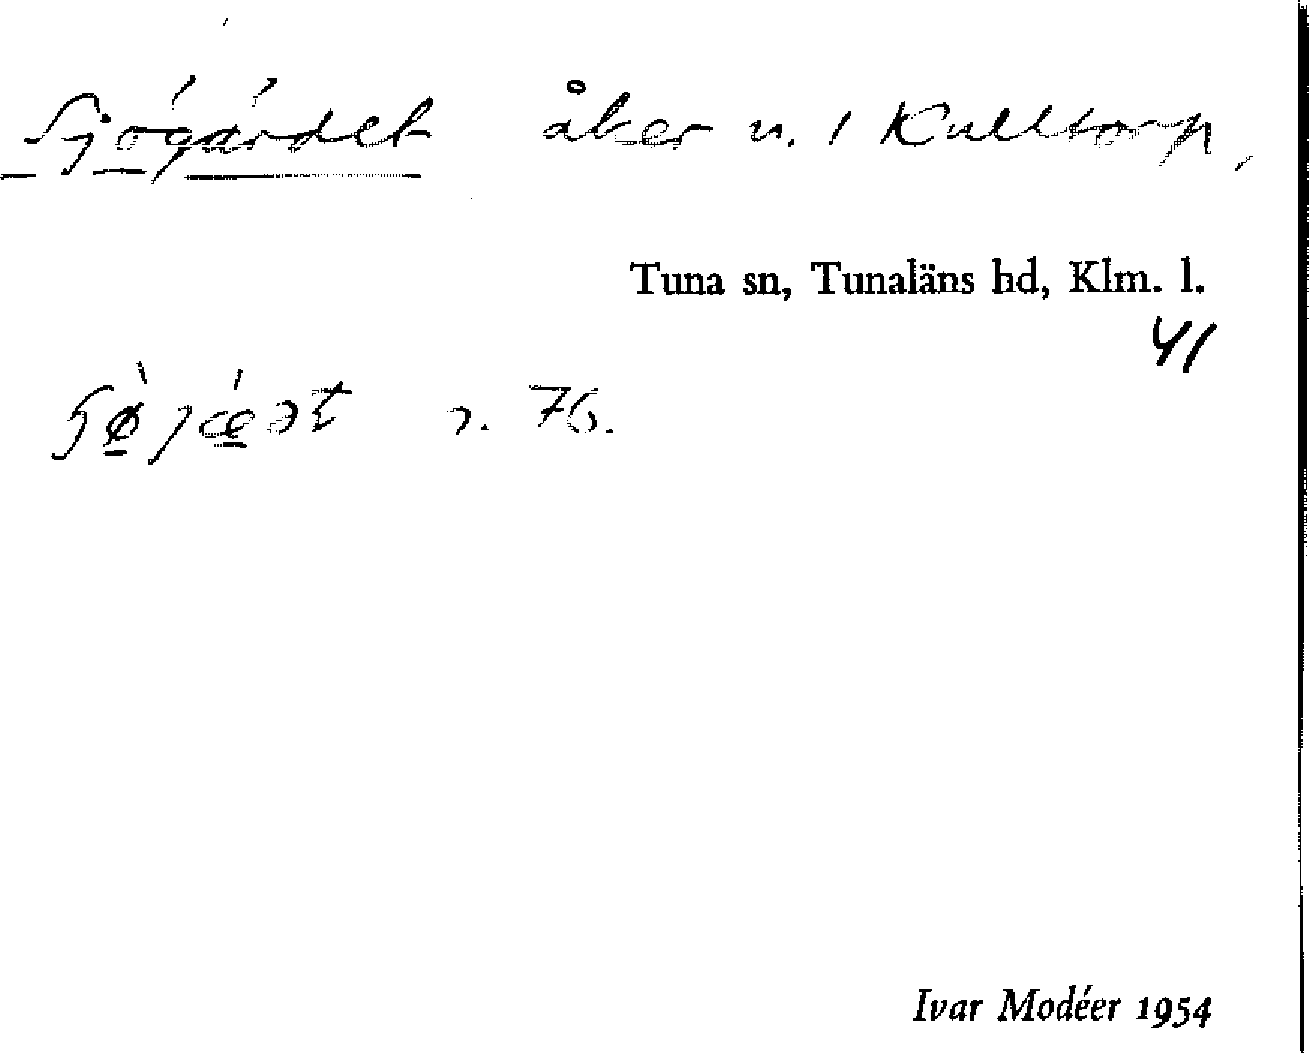 Sjögärdet åker u. 1 Kulltorp,
Tuna sn, Tunaläns hd, Klm. l.
41
s. 76.
Ivar Modéer 1954